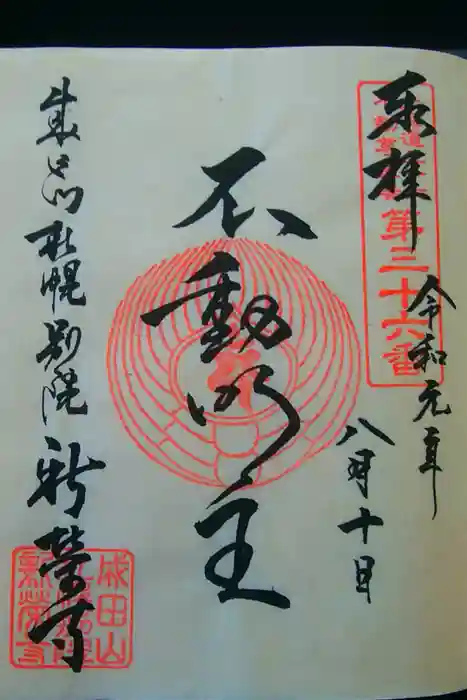 奉拝
第三十六番
令和元年
八月十日
不動明王
成田山札幌別院 新榮寺
成田山
新榮寺